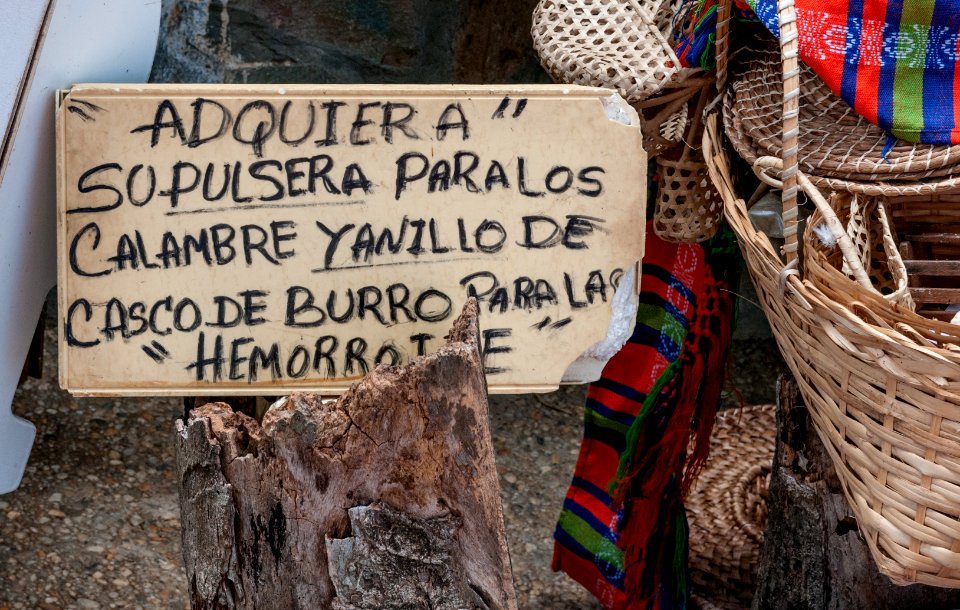 "ADQUIERA"
SU PULSERA PARA LOS
CALAMBRE Y ANILLO DE
CASCO DE BURRO PARA LAS